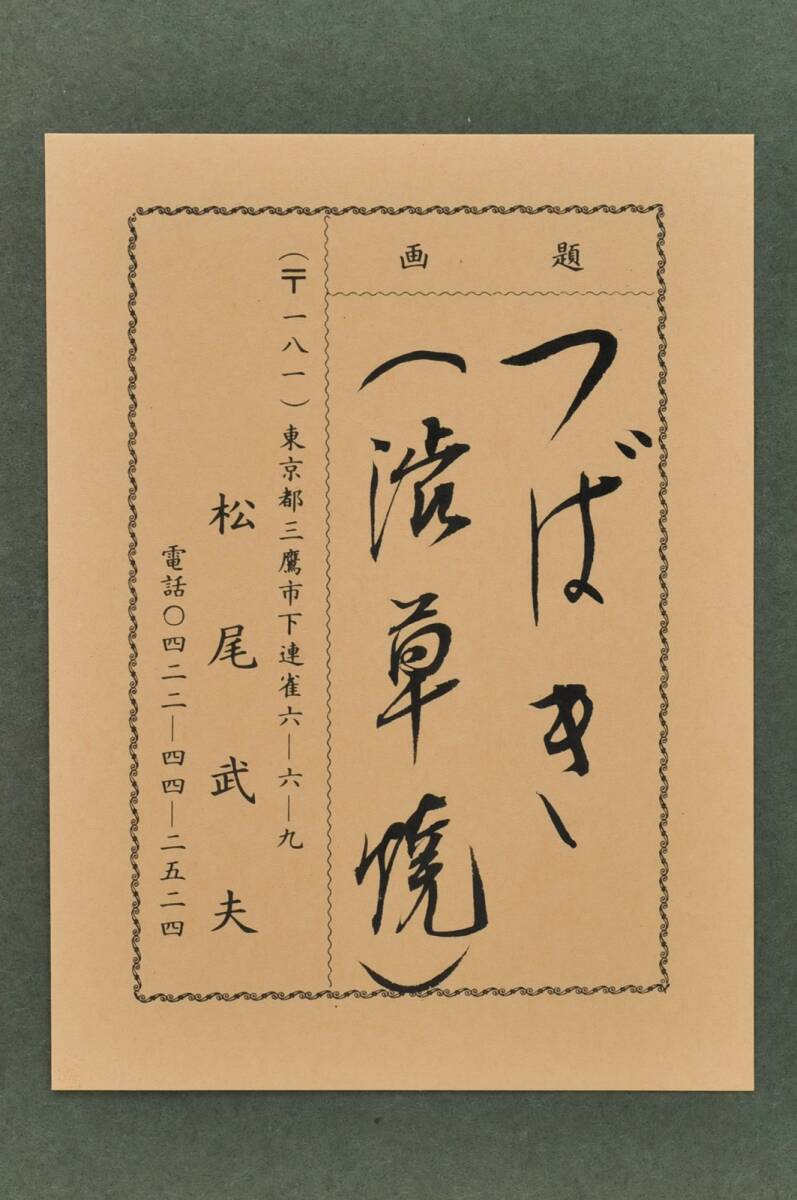 題画
つばき
（渋草焼）
（〒一八一）東京都三鷹市下連雀六―六―九
松尾武夫
電話〇四二二―四四―二五二四